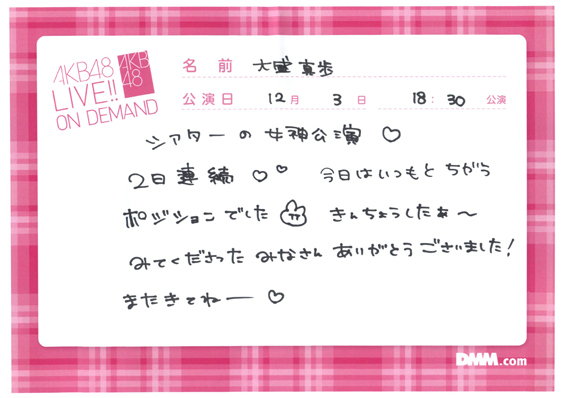 AKB48
LIVE!!
ON DEMAND
AKB
48
名前 大盛真歩
公演日 12月 3日 18:30 公演
シアターの女神公演♡
2日連続♡♡ 今日はいつもとちがう
ポジションでした きんちょうしたぁ〜
みてくださった みなさん ありがとうございました!
またきてねー♡
DMM.com